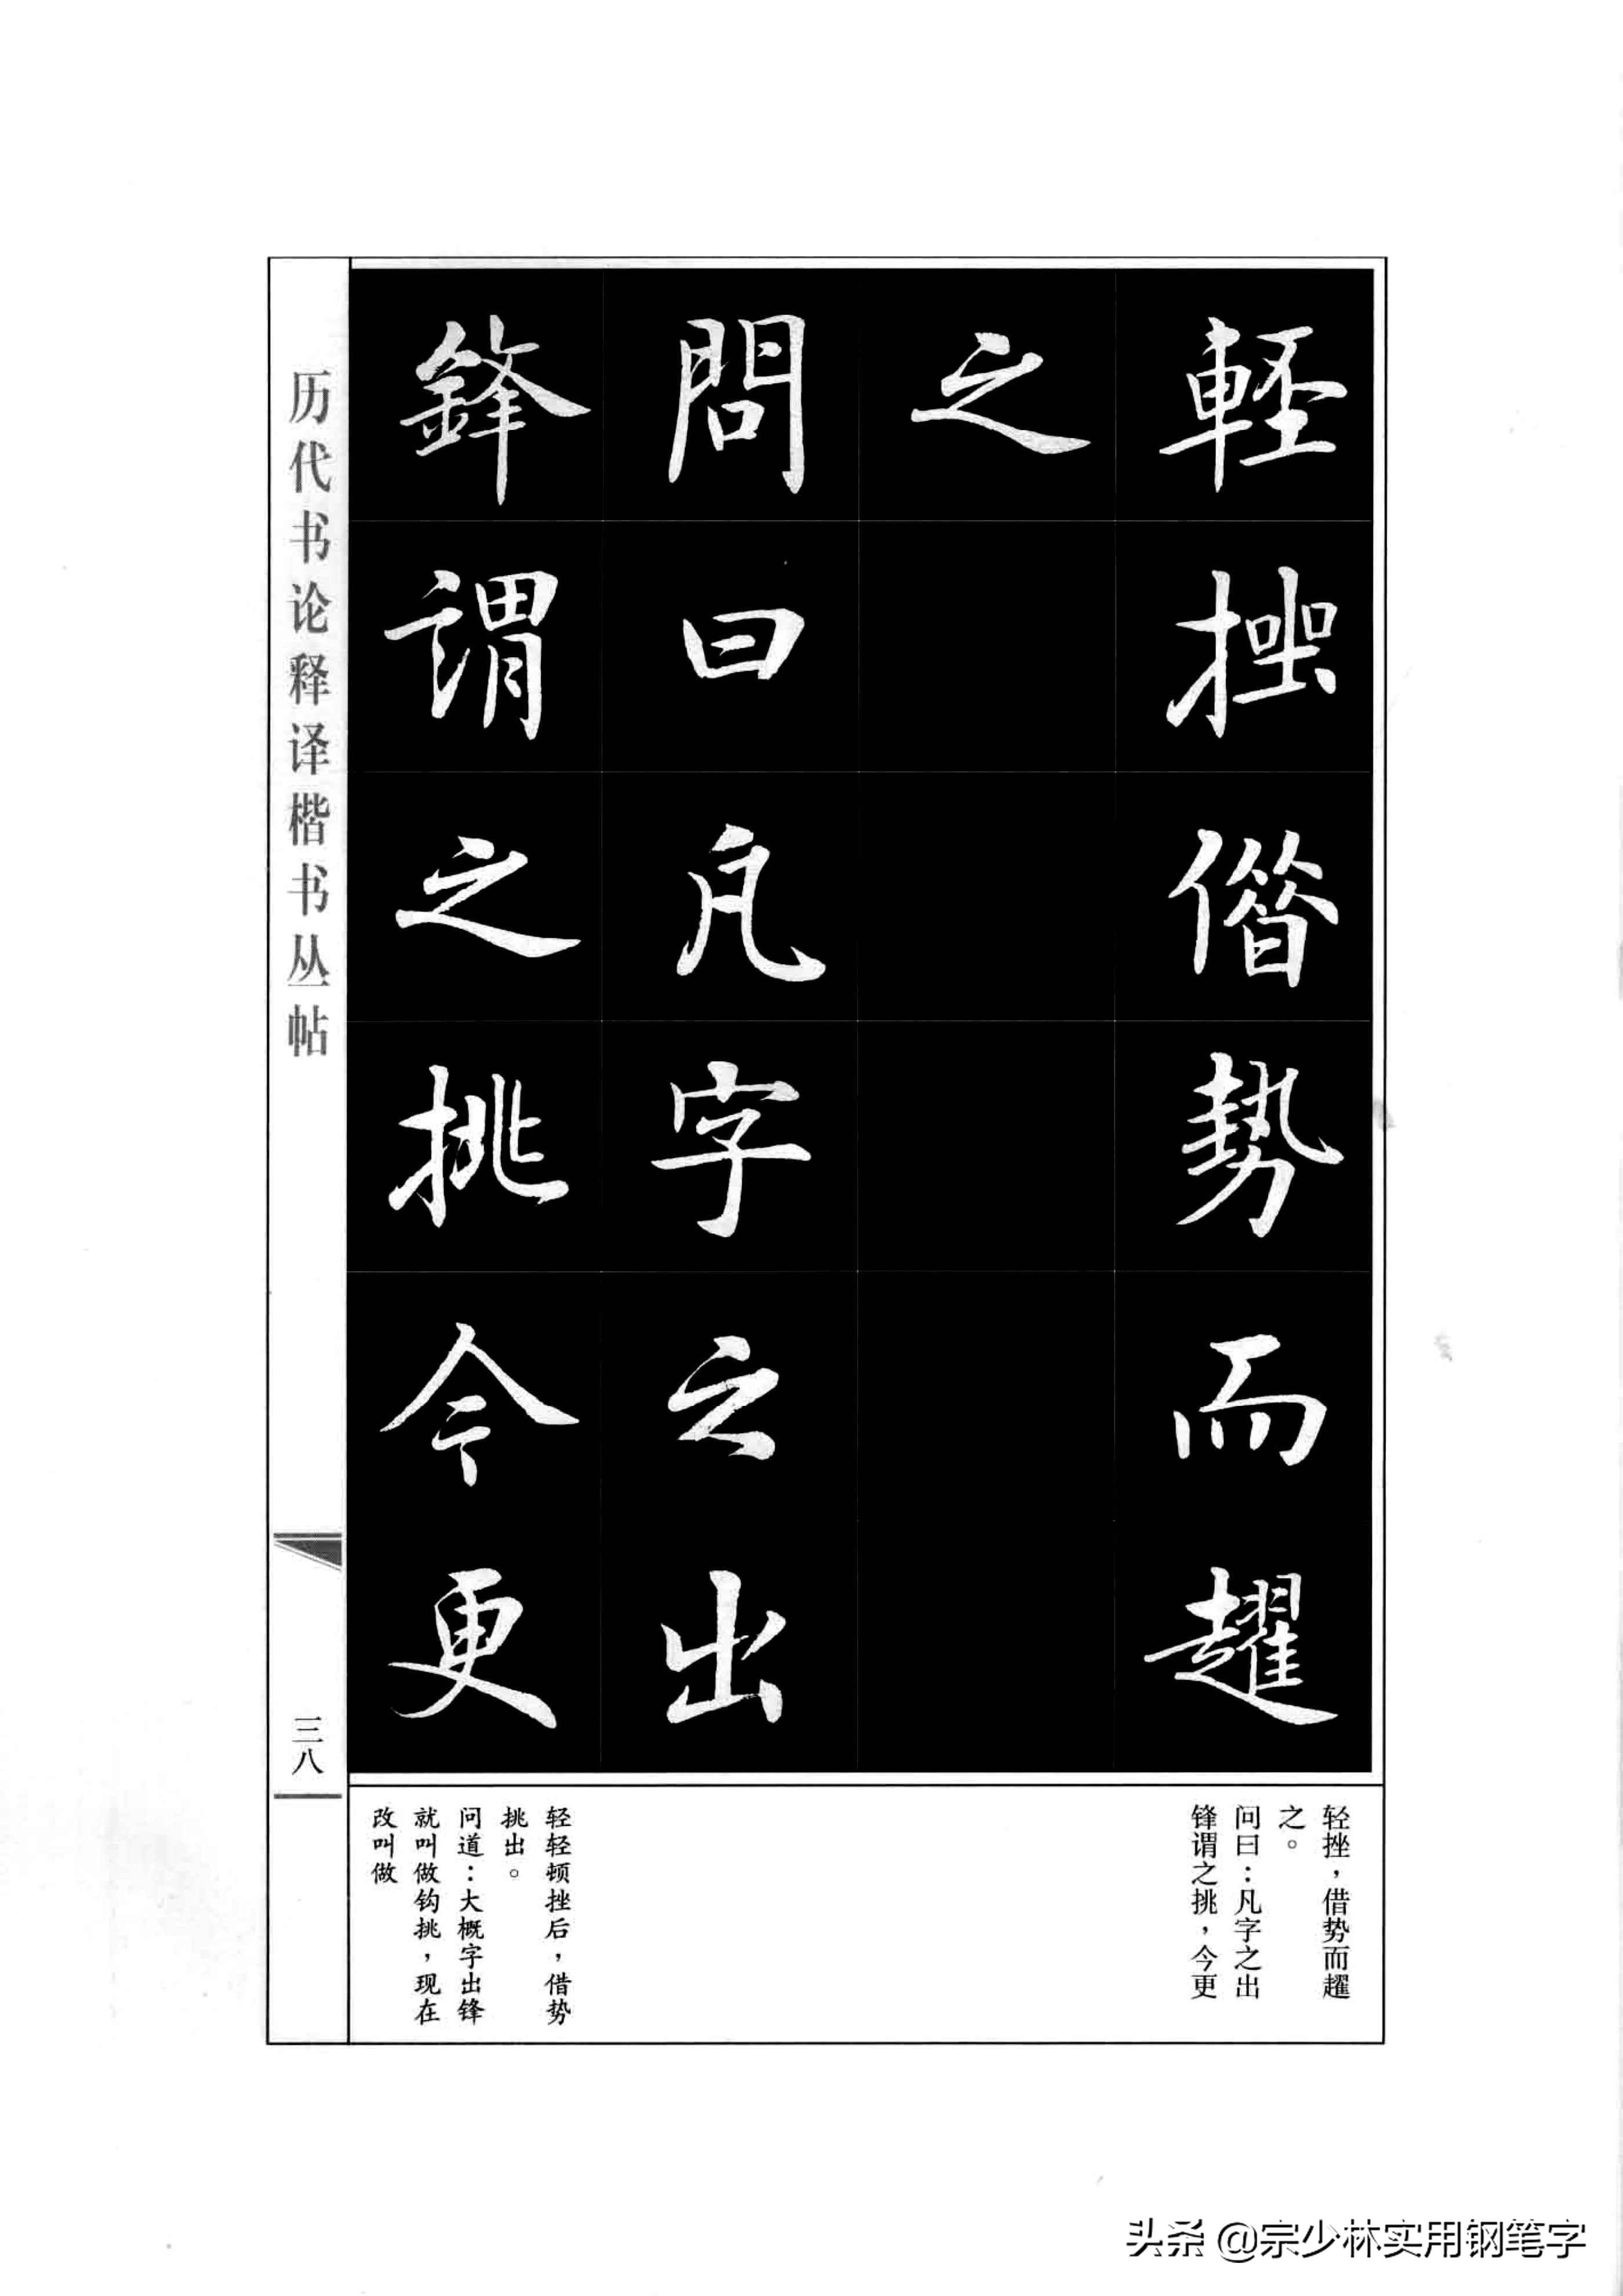 輕挫借势而趯
之
問曰凡字之出
鋒謂之挑今更
历代书论释译楷书丛帖
三八
轻挫，借势而趯
之。
问曰：凡字之出
锋谓之挑，今更
轻轻顿挫后，借势
挑出。
问道：大概字出锋
就叫做钩挑，现在
改叫做
头条 @宗少林实用钢笔字